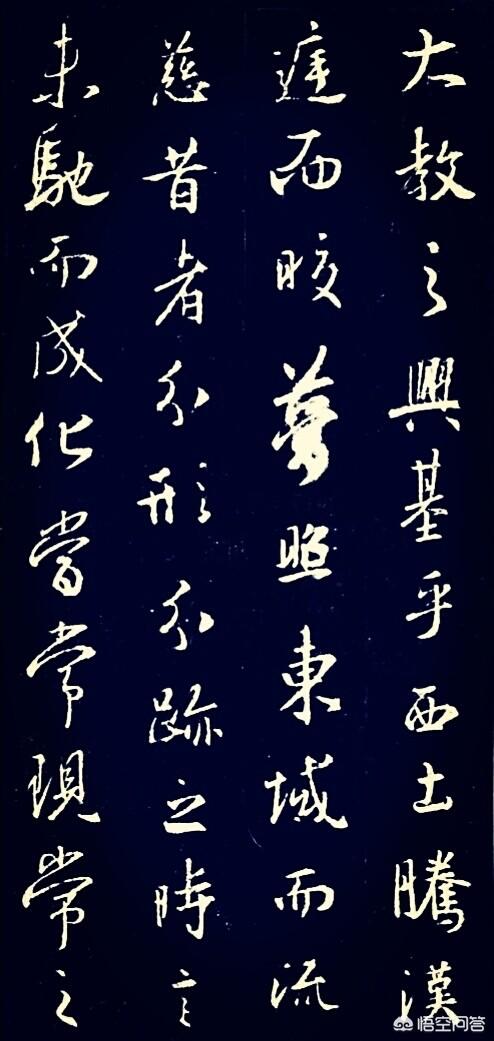 大教之興基乎西土騰漢
遑而晈夢照東域而流
慈昔者分形分跡之時言
未馳而成化當常現常之
悟空问答